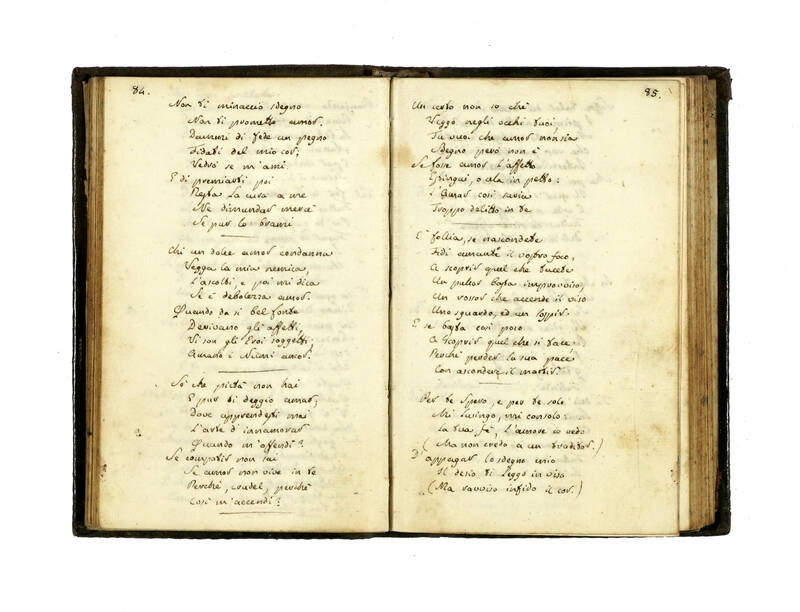 84.
Non ti minaccio sdegno
Non ti prometto amor.
Dammi di fede un pegno
Fidati del mio cor;
Vedrò se m'ami.
E di premiarti poi
Resta la cura a me
Ne dimandar mercè
Se pur lo brami
Chi un dolce amor condanna
Vegga la mia nemica,
L'ascolti, e poi mi dica
Se è debolezza amor.
Quando da sì bel fonte
Derivano gli affetti,
Vi son gli Eroi soggetti,
Amano i Numi ancor.
Sò che pietà non hai
E pur ti deggio amar;
Dove apprendesti mai
L'arte di innamorar
Quando m'offendi?
Se compatir non sai
Se amor non vive in te
Perchè, crudel, perchè
Così m'accendi?
85.
Un certo non so che
Veggo negli occhi tuoi,
Tu vuoi che amor non sia
Sdegno però non è
Se fosse amor l'affetto
Estingui, o cela in petto:
L'amar così saria
Troppo delitto in te
E' follia, se nascondete
Fidi amanti il vostro foco,
A scoprir quel che tacete
Un pallor basta improvviso,
Un rossor che accende il viso
Uno sguardo, ed un sospir.
E se basta così poco
A scoprir quel che si tace
Perchè perder la sua pace
Con ascondere il martir.
Per te spero, e per te solo
Mi lusingo, mi consolo:
La tua fè, l'amore io vedo
(Ma non credo a un traditor.)
D'appagar lo sdegno mio
Il desio ti leggo in viso
(Ma ravviso infido il cor.)